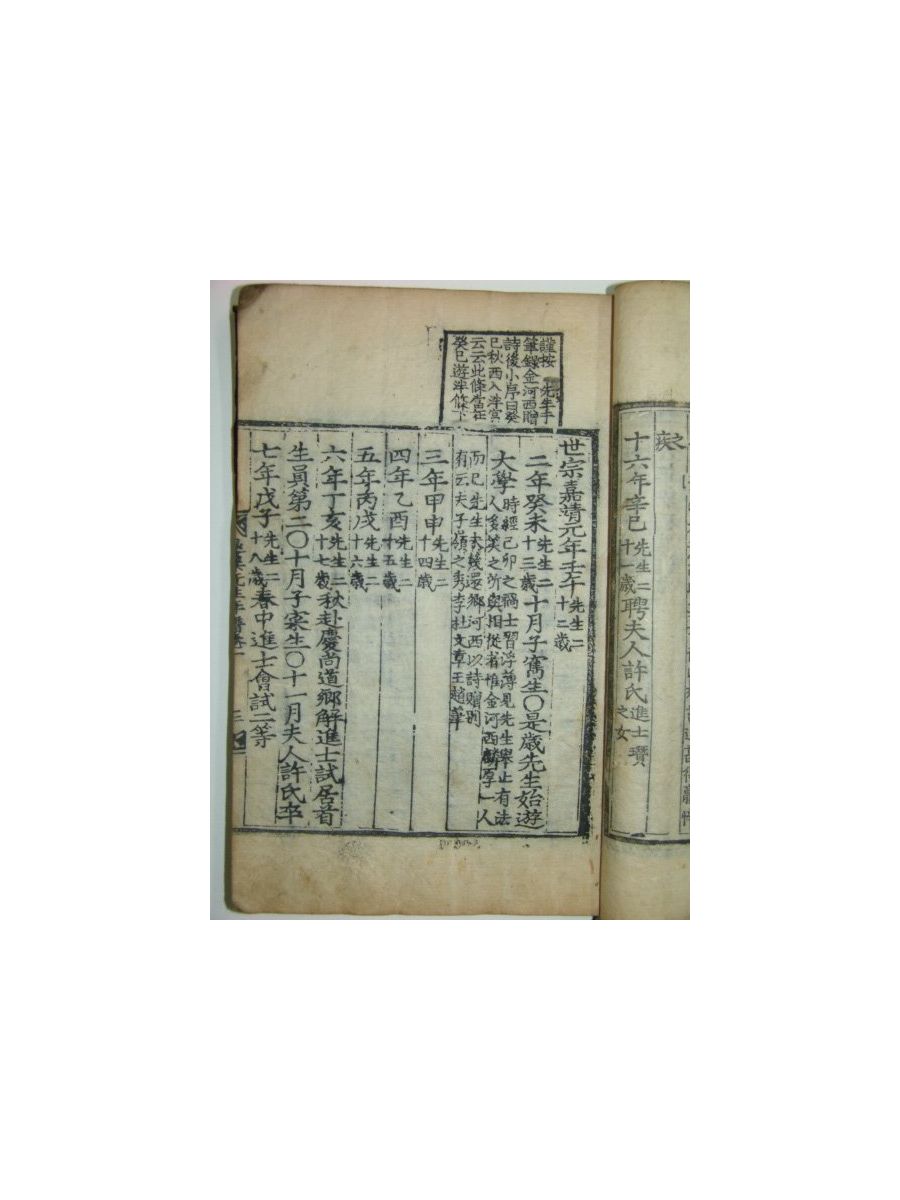 之
疾
十六年辛巳先生二十一歲聘夫人許氏進士瓚之女
謹按 先生手
筆錄金河西贈
詩後小序曰癸
巳秋西入泮宮
云云此條當在
癸巳遊泮條下
世宗嘉靖元年壬午先生二十二歲
二年癸未先生二十三歲十月子寯生〇是歲先生始遊
大學時經己卯之禍士習浮薄見先生擧止有法人多笑之所與相從者惟金河西麟厚一人
而已先生未幾還鄕河西以詩贈別有云夫子嶺之秀李杜文章王趙筆
三年甲申先生二十四歲
四年乙酉先生二十五歲
五年丙戌先生二十六歲
六年丁亥先生二十七歲秋赴慶尙道鄕解進士試居首
生員第二〇十月子寀生〇十一月夫人許氏卒
七年戊子先生二十八歲春中進士會試二等